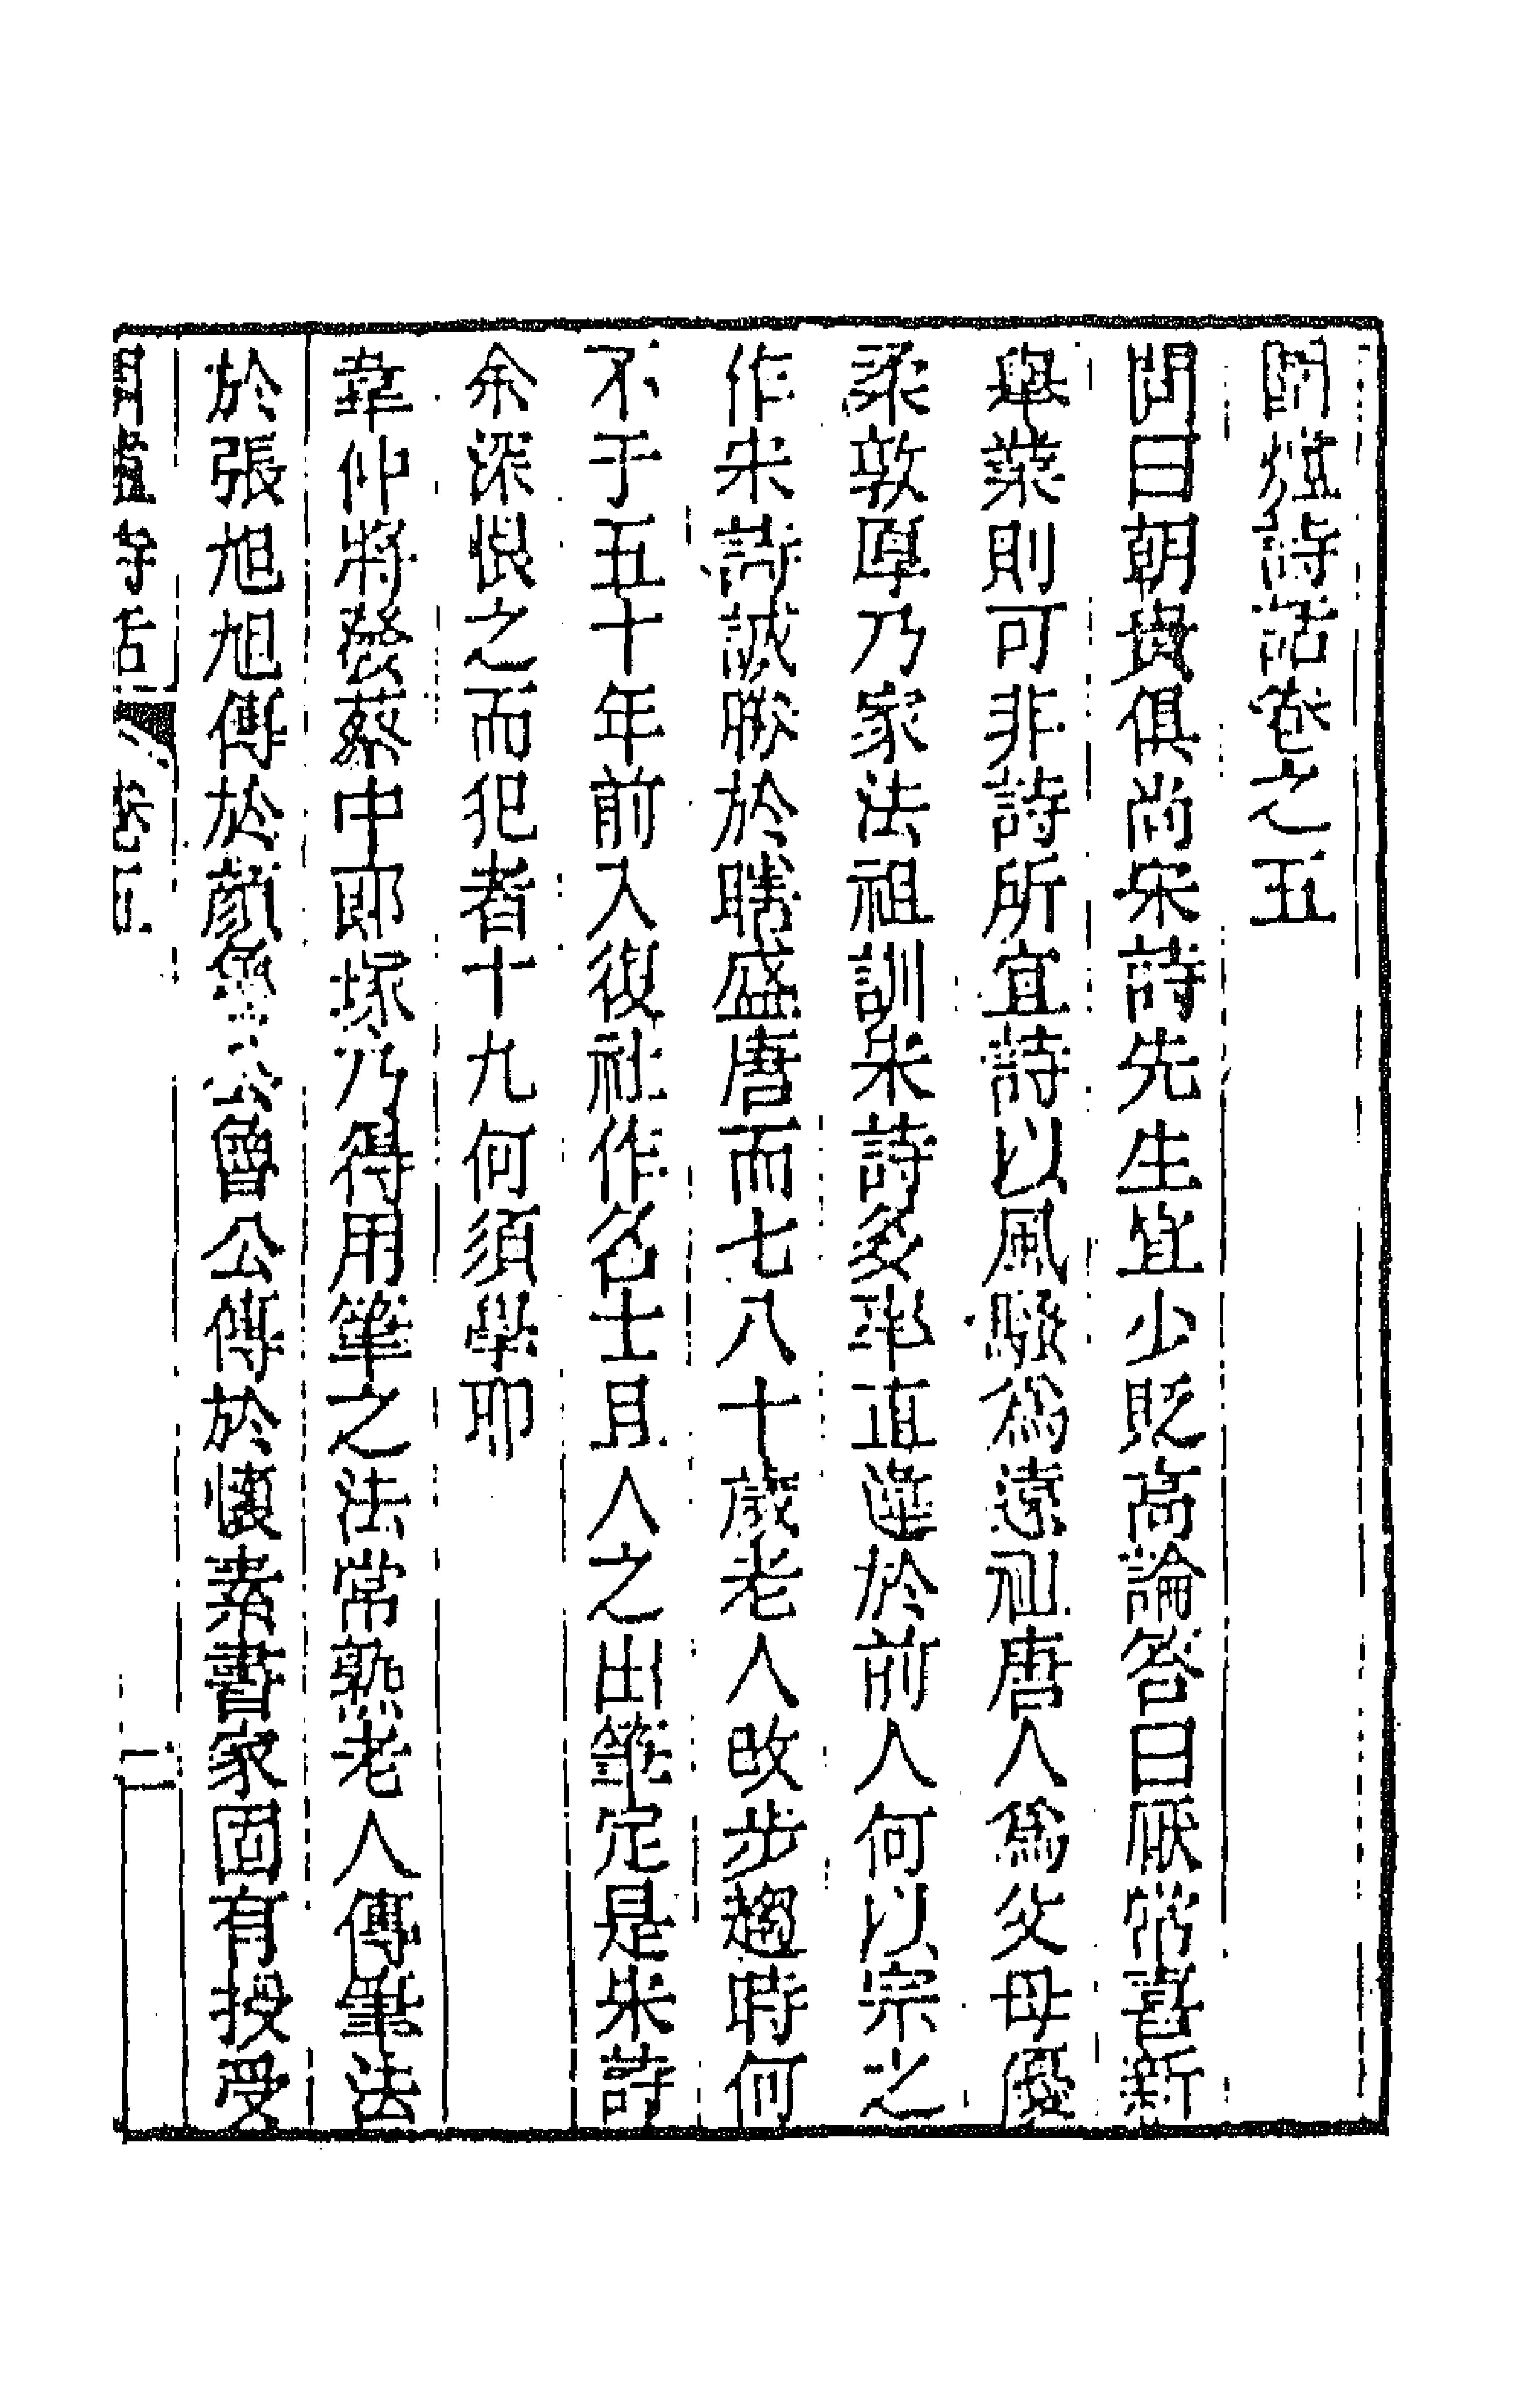 圍爐詩話卷之五
問曰朝貴俱尚宋詩先生宜少貶高論答曰厭常喜新
舉業則可非詩所宜詩以風騷為遠祖唐人爲父母優
柔敦厚乃家法祖訓宋詩多率直違於前人何以宗之
作宋詩誠勝於瞎盛唐而七八十歲老人改步趨時何
不于五十年前入復社作名士且人之出筆定是宋詩
余深恨之而犯者十九何須學耶
韋仲將發蔡中郎塚乃得用筆之法常熟老人傳筆法
於張旭旭傳於顏魯公曾公傳於懷素書家固有授受
圍爐詩話 卷五 一